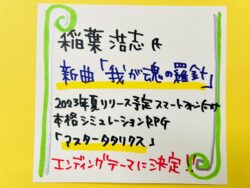 稲葉浩志氏
新曲「我が魂の羅針」
2023年夏リリース予定 スマートフォン向け
本格シミュレーションRPG
「アスタータタリクス」
エンディングテーマに決定!!